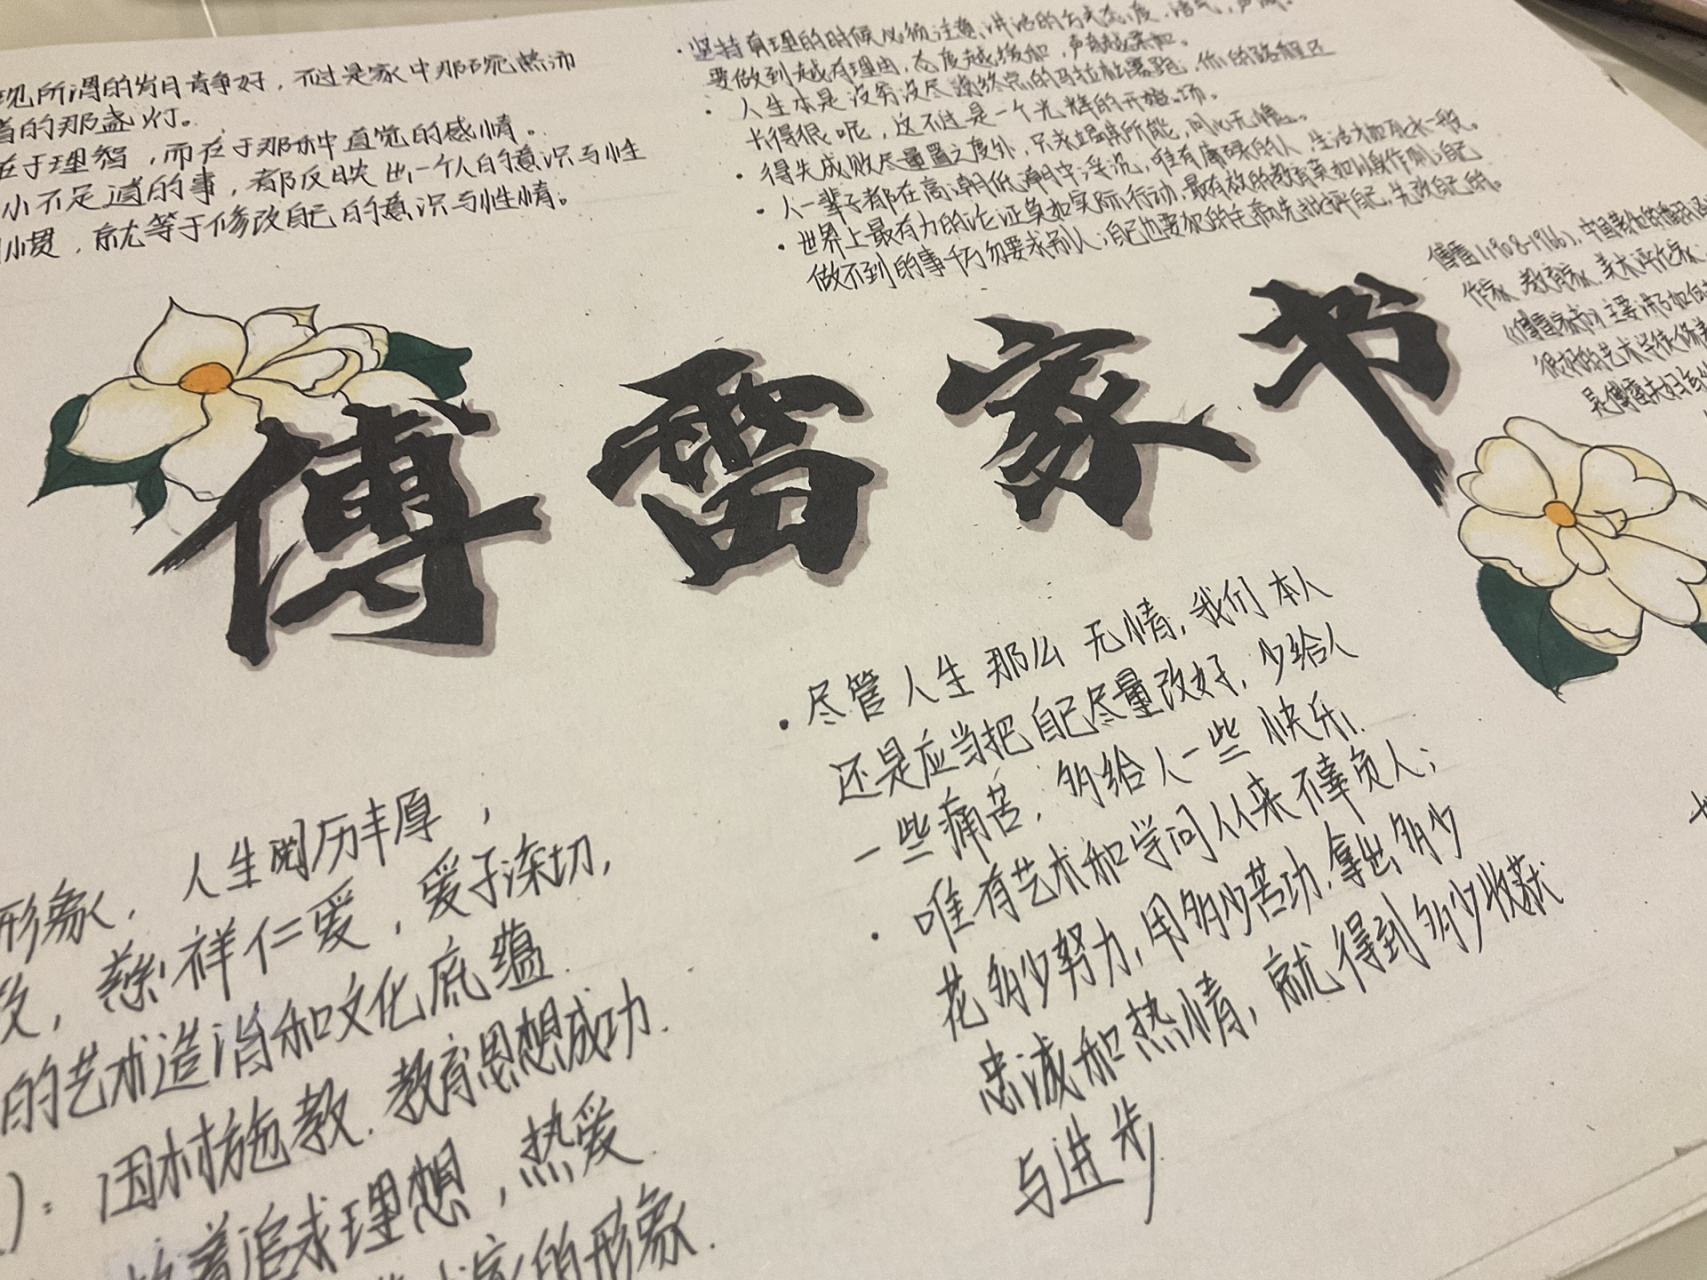 现所谓的岁月静好，不过是家中那碗热汤
着的那盏灯。
在于理智，而在于那种直觉的感情。
小不足道的事，都反映出一个人的意识与性
习惯，就等于修改自己的意识与性情。
·坚持有理的时候必须注意讲话的方式态度，语气，声调。
要做到越有理由，态度越缓和，声音越柔和。
·人生本是没穷没尽没终点的马拉松赛跑，你的路程还
长得很呢，这不过是一个光辉的开场。
·得失成败尽量置之度外，只求竭尽所能，问心无愧。
·人一辈子都在高潮低潮中浮沉，唯有庸碌的人，生活才如死水一般。
·世界上最有力的论证莫如实际行动，最有效的教育莫如以身作则；自己
做不到的事千万勿要求别人；自己也要犯的毛病先批评自己，先改自己的。
傅雷(1908-1966)，中国著名的翻译
作家，教育家，美术评论家，
《傅雷家书》主要讲了如何
很好的艺术
是傅雷夫妇
傅雷家书
形象，人生阅历丰厚，
慈祥仁爱，爱子深切，
的艺术造诣和文化底蕴
)：因材施教，教育思想成功.
着追求理想，热爱
的形象.
·尽管人生那么无情，我们本人
还是应当把自己尽量改好，少给人
一些痛苦，多给人一些快乐.
·唯有艺术和学问从来不辜负人；
花多少努力，用多少苦功，拿出多少
忠诚和热情，就得到多少收获
与进步